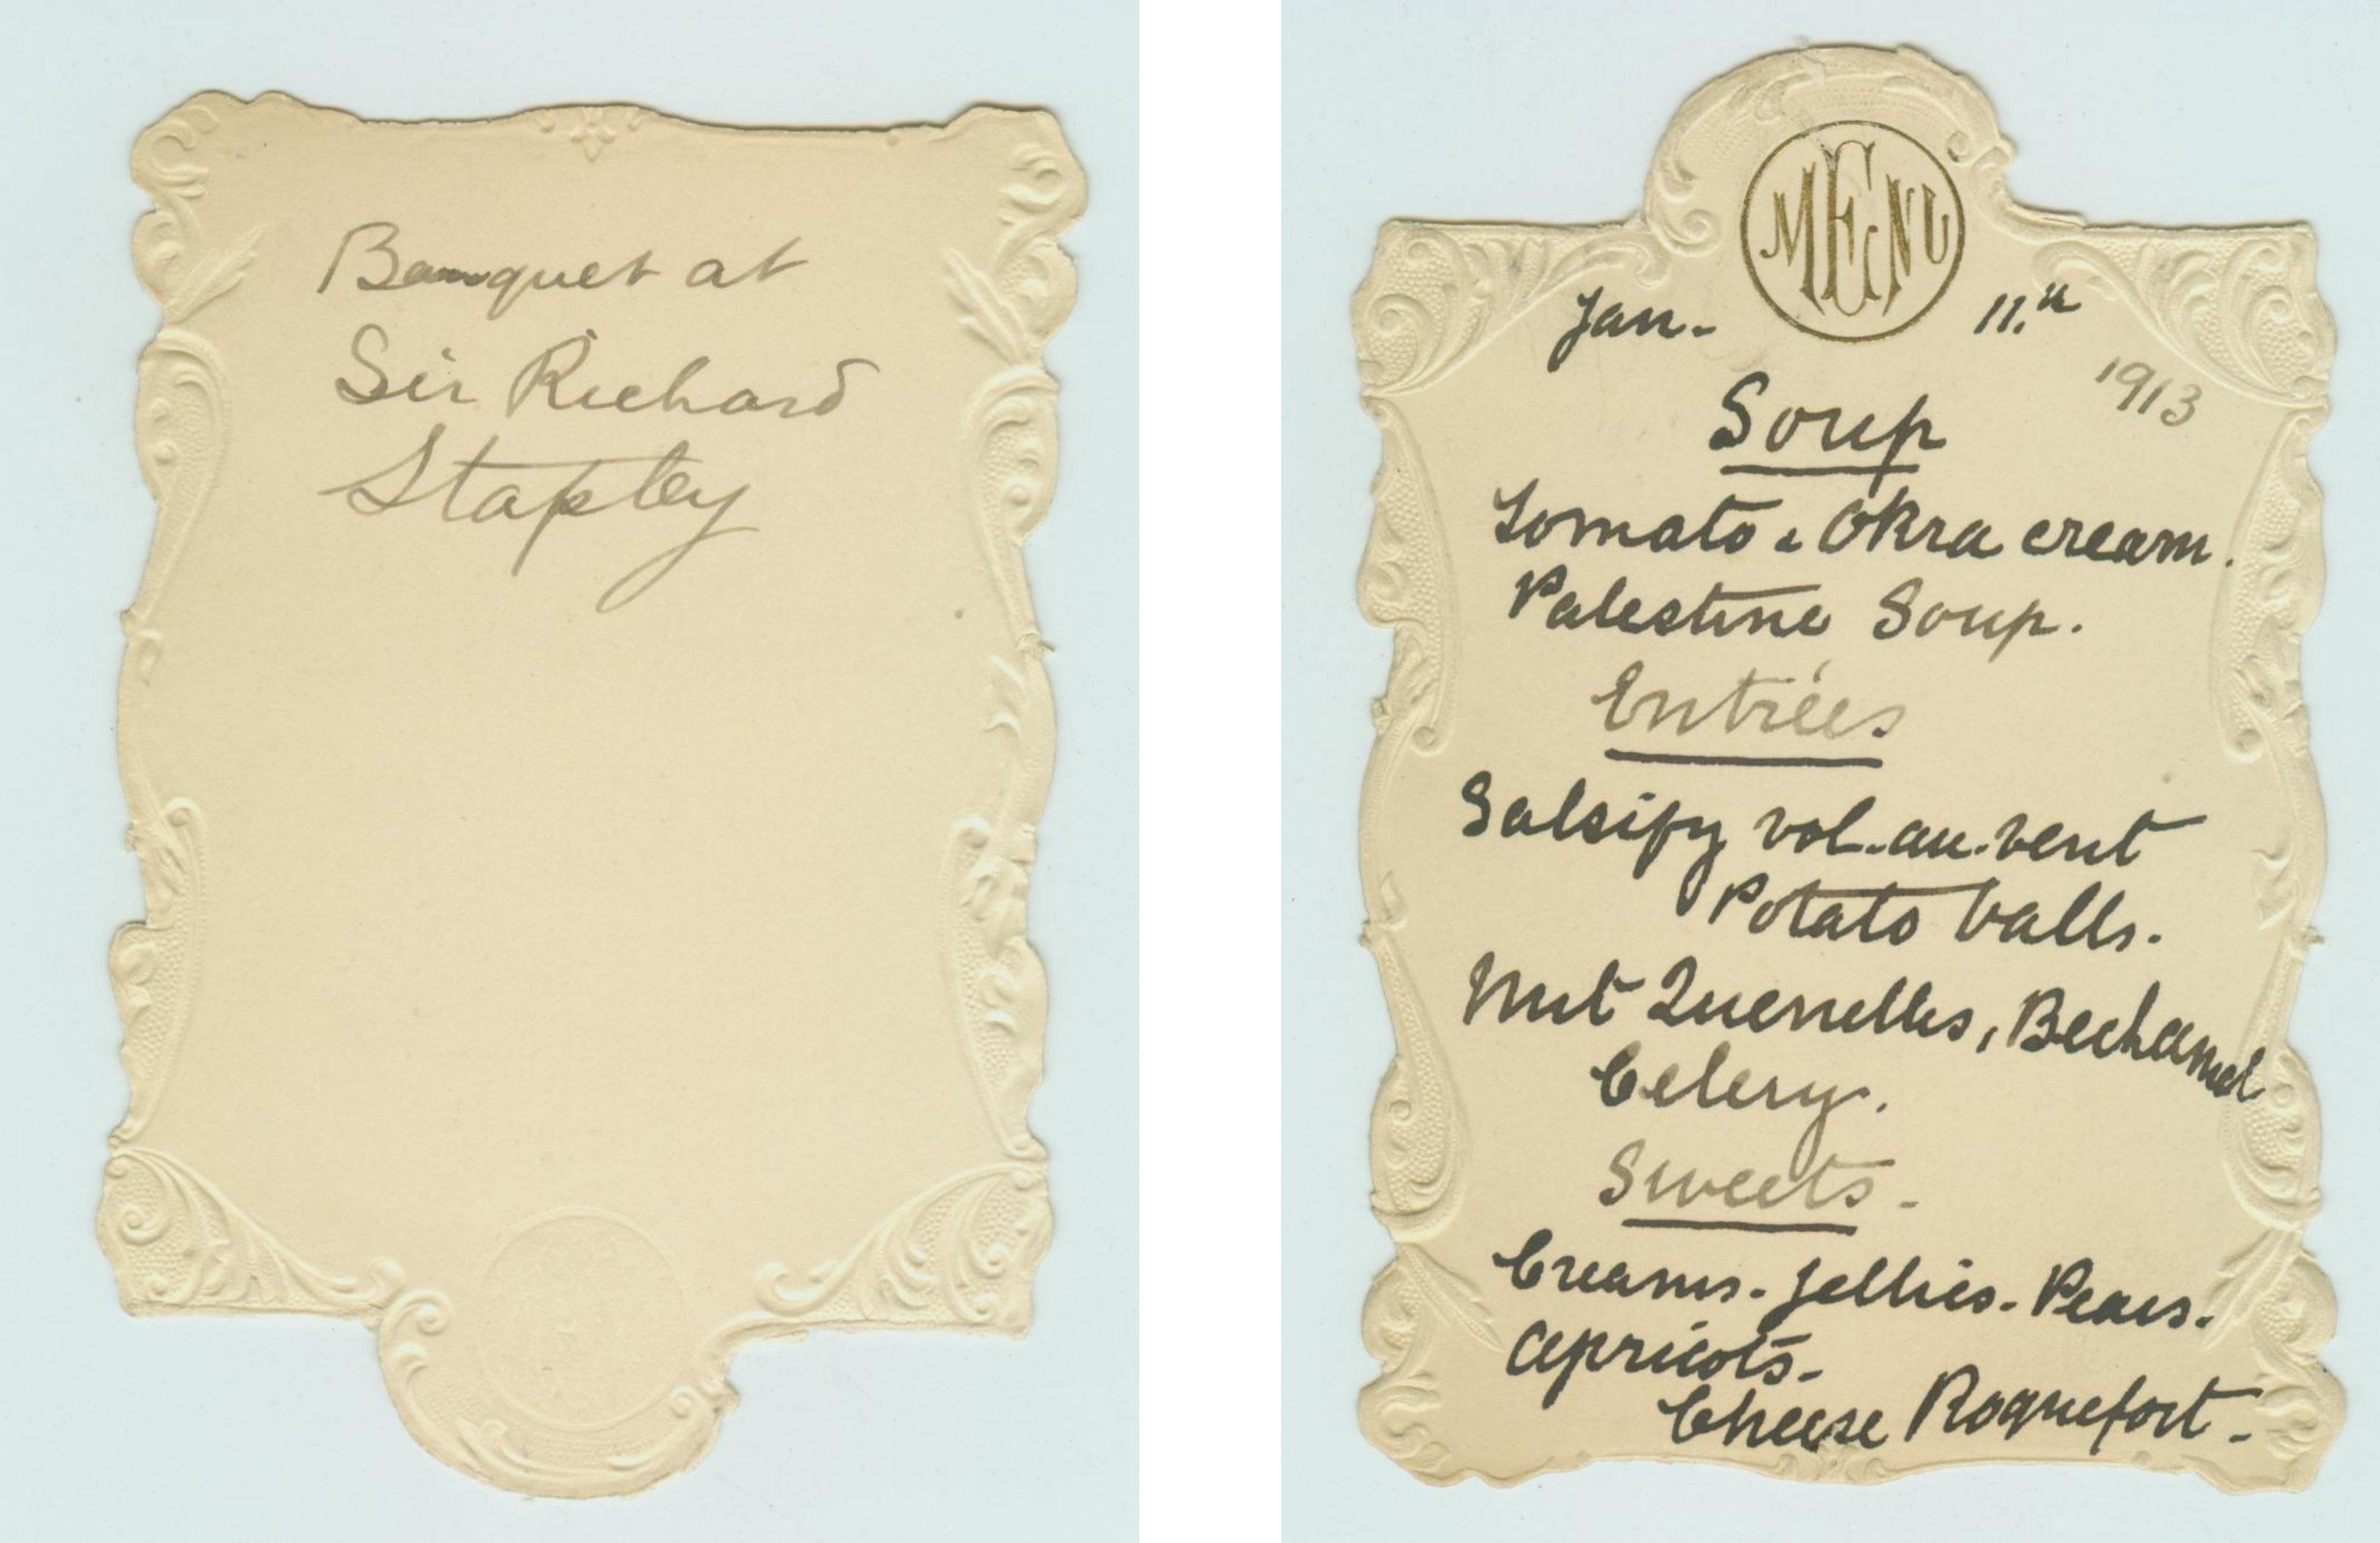 Banquet at
Sir Richard
Stapley
MENU
Jan. 11.th
1913
Soup
Tomato & Okra cream.
Palestine Soup.
Entrées
Salsify vol-au-vent
Potato balls.
Nut Quenelles, Bechamel
Celery.
Sweets.
Creams. Jellies. Pears.
Apricots.
Cheese Roquefort.